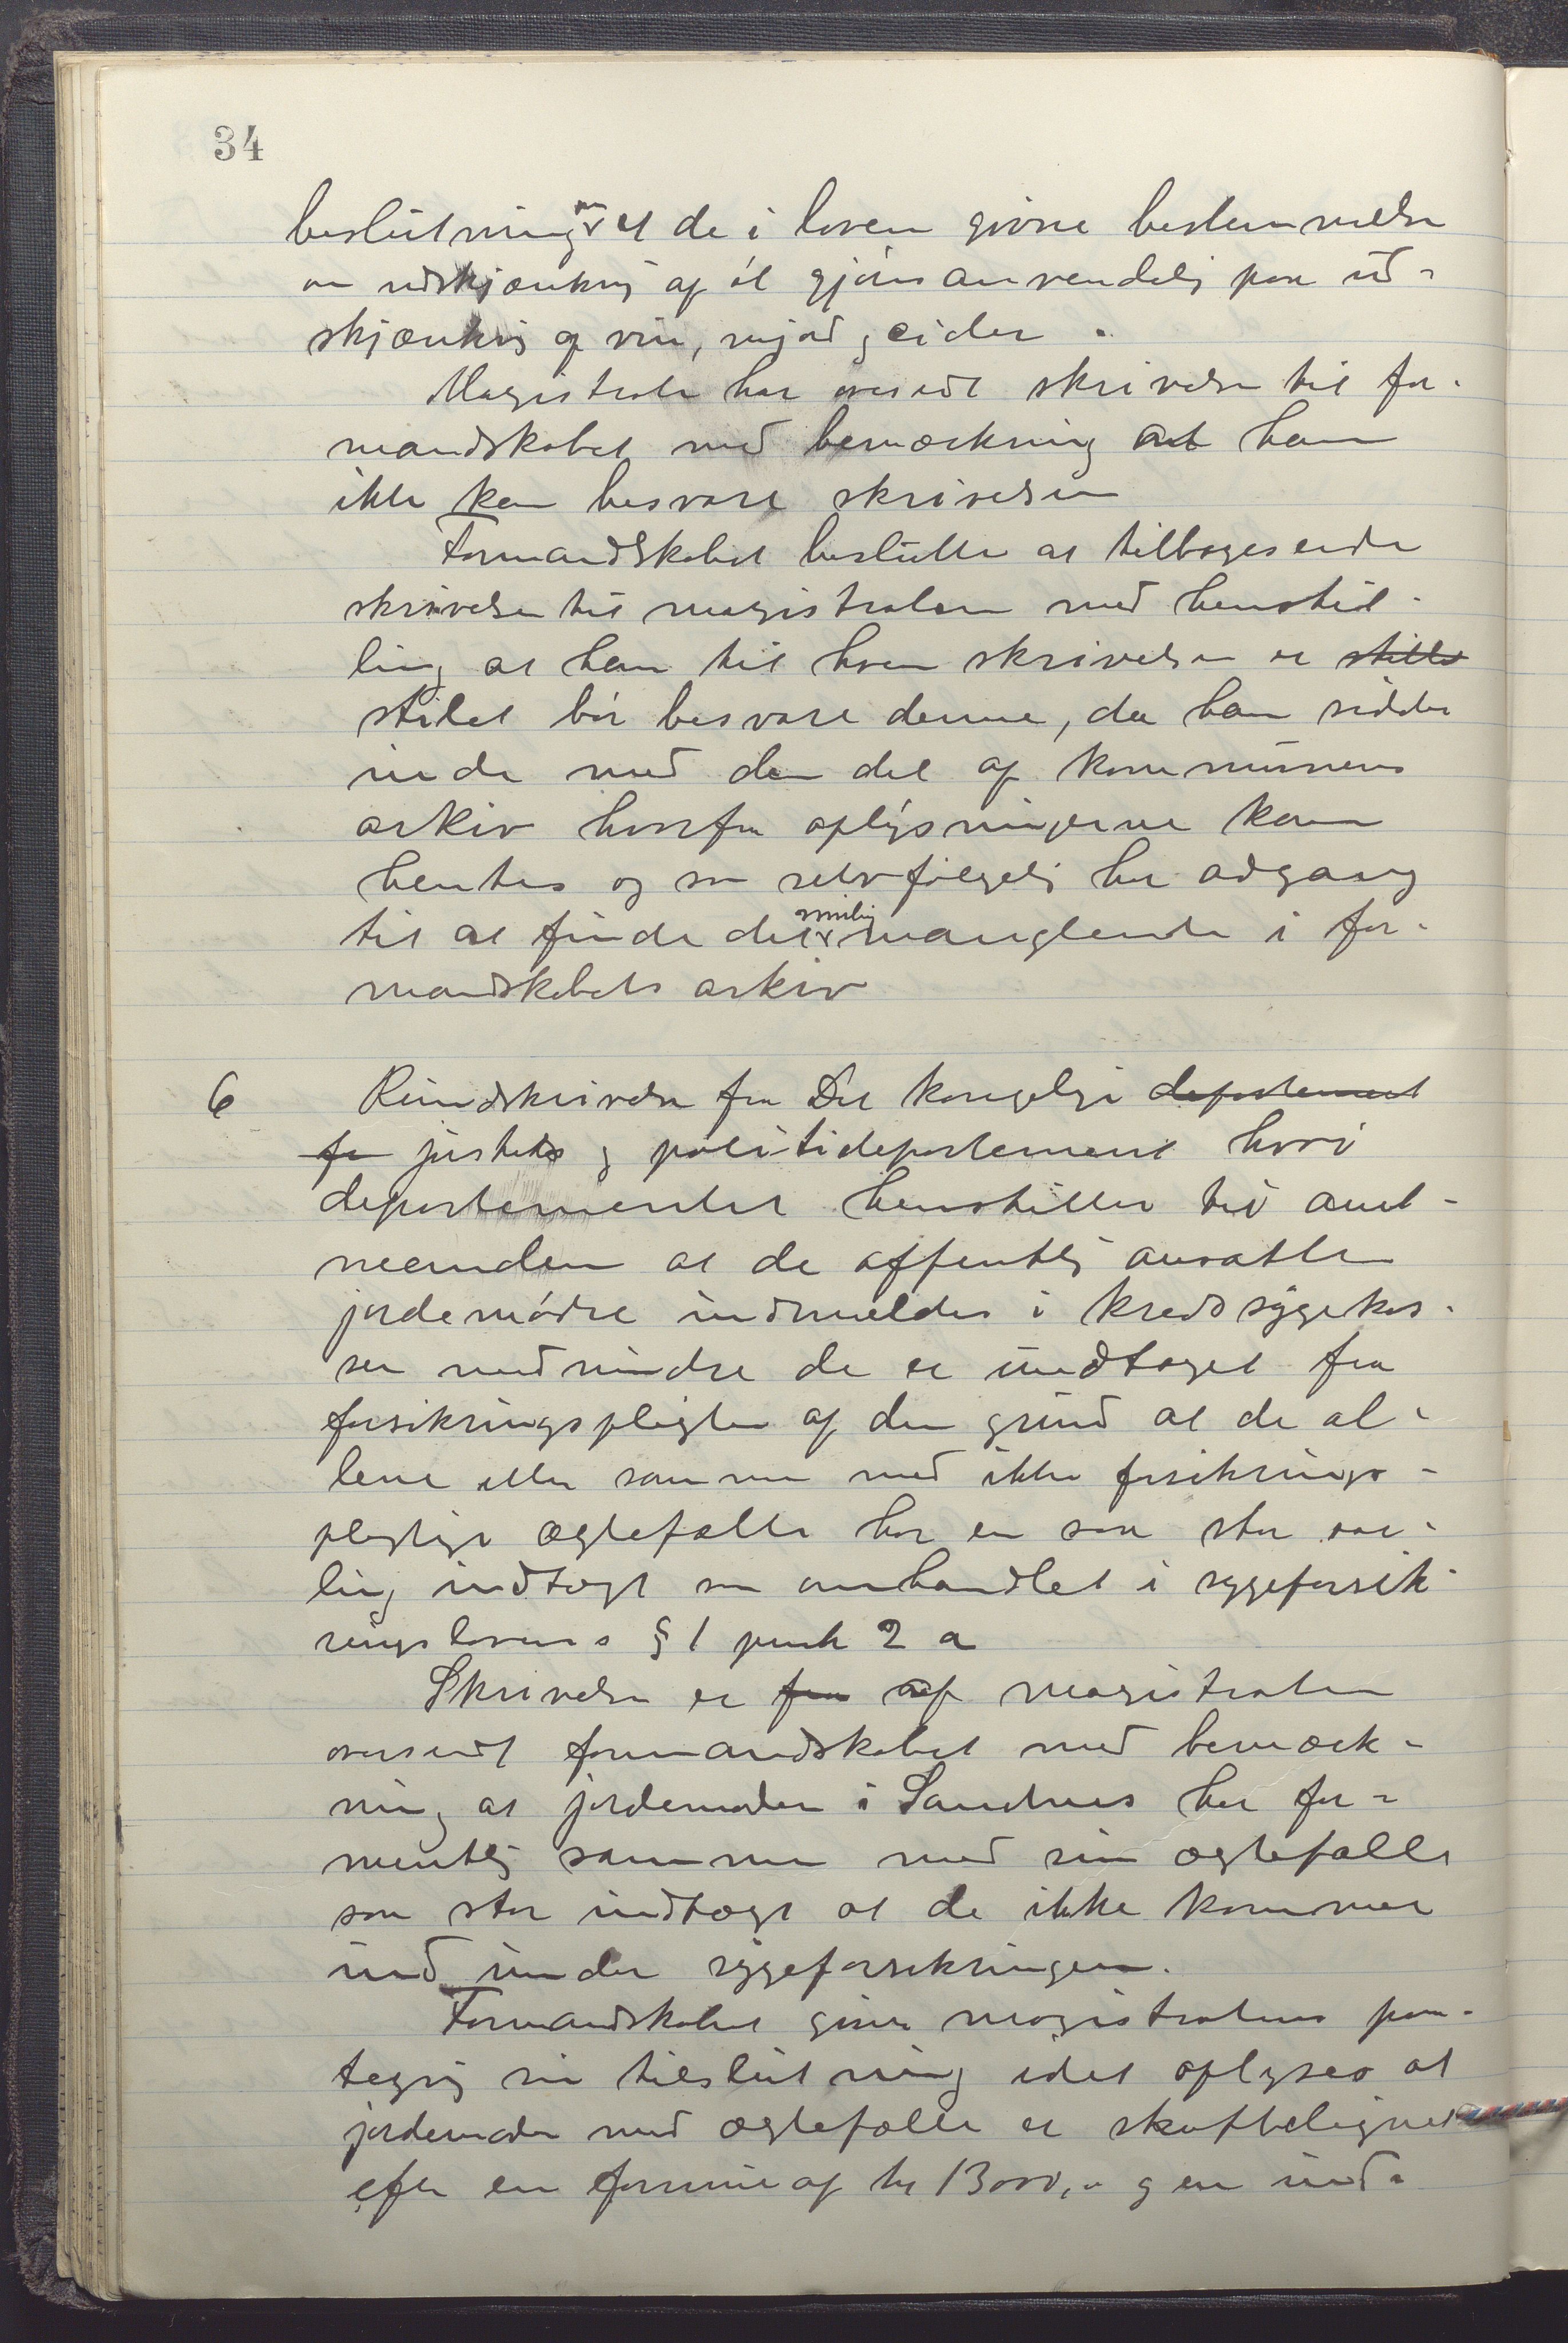 34
beslutning om at de i loven givne bestemmelser
om udskjænkning af øl gjøres anvendelig paa ud-
skjænkning af vin, mjød og cider.
Magistraten har oversendt skrivelsen til for-
mandskabet med bemærkning at han
ikke kan besvare skrivelsen
Formandskabet beslutter at tilbagesende
skrivelsen til magistraten med henstil-
ling at han til hvem skrivelsen er stillet
stilet bør besvare denne, da han sidder
inde med den del af kommunens
arkiv hvorfra oplysningerne kan
hentes og som selvfølgelig har adgang
til at finde det mulig manglende i for-
mandskabets arkiv
6 Rundskrivelse fra Det kongelige departement
for justits og politidepartement hvori
departementet henstiller til amt-
mændene at de offentlig ansatte
jordemødre indmeldes i kredssygekas-
sen medmindre de er undtaget fra
forsikringspligten af den grund at de al-
lene eller sammen med ikke forsikrings-
pligtige ægtefælle har en saa stor aar-
lig indtægt som omhandlet i sygeforsik-
ringslovens § 1 punkt 2 a
Skrivelsen er fra af magistraten
oversendt formandskabet med bemærk-
ning at jordemoderen i Sandnes har for-
mentlig sammen med sin ægtefælle
saa stor indtægt at de ikke kommer
ind under sygeforsikringen.
Formandskabet giver magistratens paa-
tegning sin tilslutning idet oplyses at
jordemoder med ægtefælle er skattelignet
efter en formue af kr 13000,- og en ind-